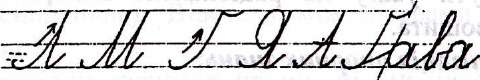 Л М Г Я А Гава